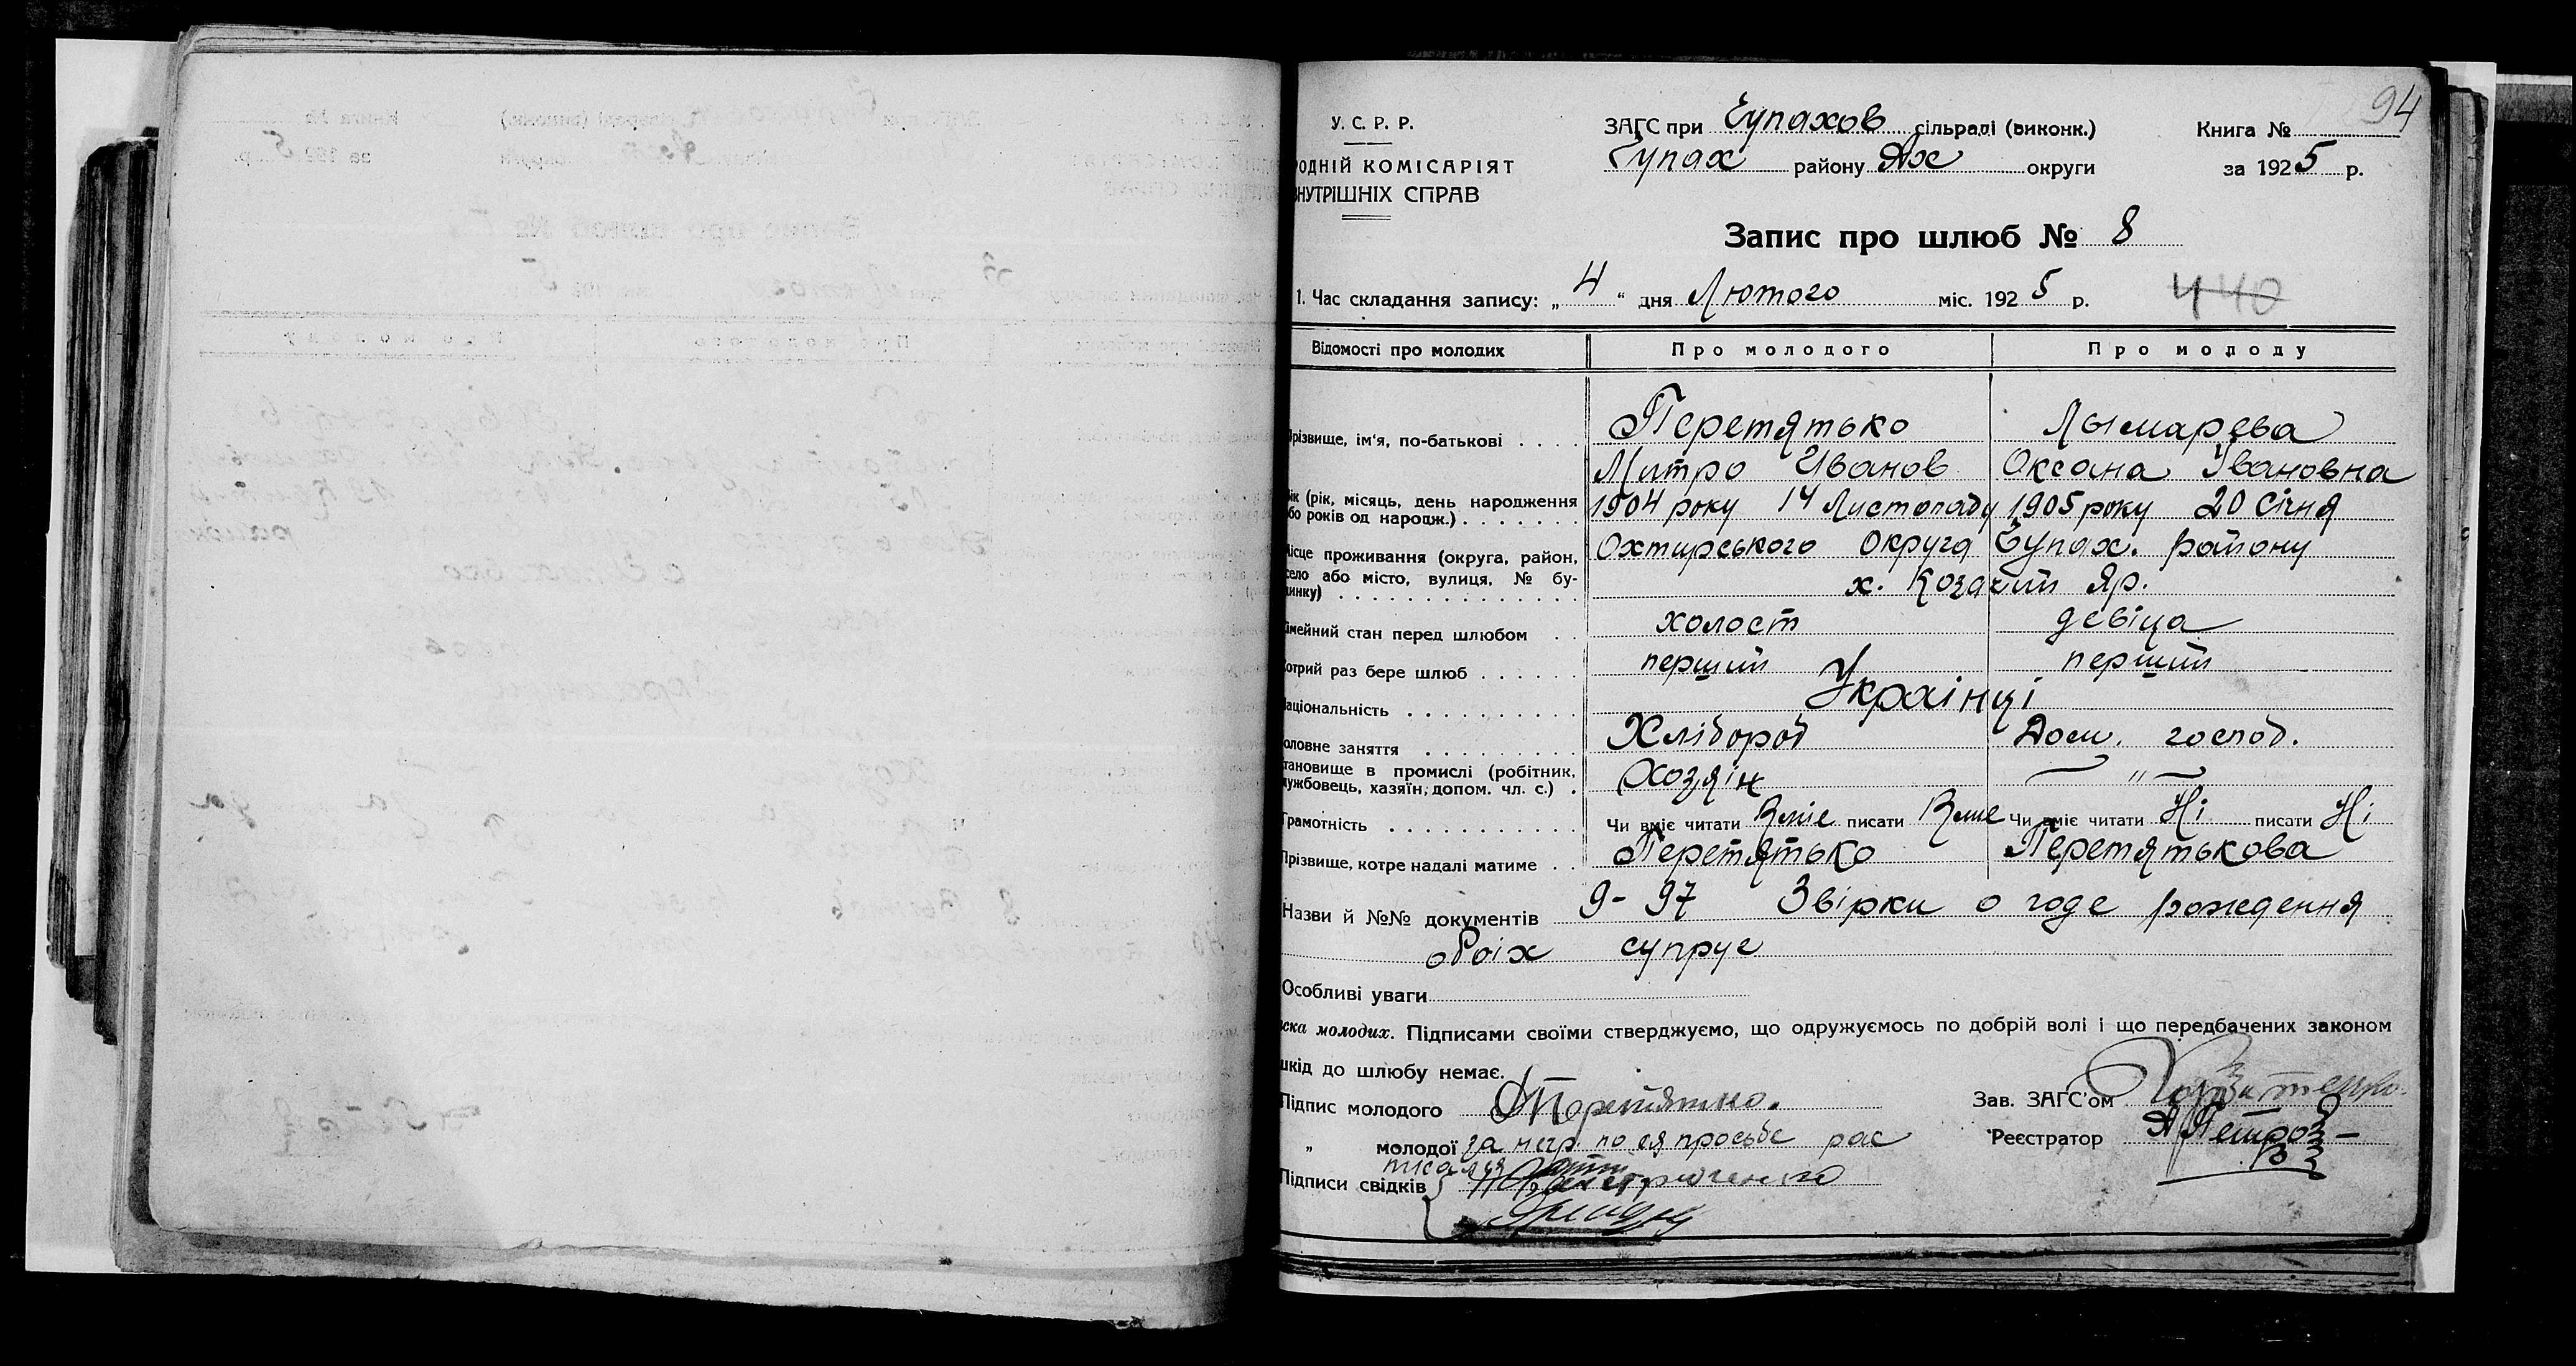 94
У. С. Р. Р.
ЗАГС при Чупахов сільраді (виконк.)
Книга №
РОДНІЙ КОМІСАРІЯТ
Чупах району Ях округи
за 1925 р.
ВНУТРІШНІХ СПРАВ
Запис про шлюб № 8
1. Час складання запису: „4“ дня Лютого міс. 1925 р.
440
Відомості про молодих
Про молодого
Про молоду
Прізвище, ім'я, по-батькові . . . .
Перетятько
Лымарева
Митро Иванов
Оксана Iвановна
Вік (рік, місяць, день народження
або років од народж.) . . . . . . .
1904 року 14 Листопаду
1905 року 20 Січня
Місце проживання (округа, район,
село або місто, вулиця, № бу-
динку) . . . . . . . . . . . . . .
Охтирського Округа Чупах. району
х. Козачий Яр.
Сімейний стан перед шлюбом . .
холост
девіца
Котрий раз бере шлюб . . . . . .
перший
перший
Національність . . . . . . . . . .
Украінці
Головне заняття . . . . . . . . .
Хлібороб
Дом. господ.
Становище в промислі (робітник,
службовець, хазяїн, допом. чл. с.) .
Хозяін
— " —
Грамотність . . . . . . . . . . .
Чи вміє читати Вміе писати Вміе
Чи вміє читати Ні писати Ні
Прізвище, котре надалі матиме . .
Перетятько
Перетятькова
Назви й №№ документів 9-97 Звірки о годе рождення
обоіх супруг
Особливі уваги
ска молодих. Підписами своїми стверджуємо, що одружуємось по добрій волі і що передбачених законом
шкід до шлюбу немає.
Підпис молодого Перетятько.
Зав. ЗАГС'ом
„ молодої за негр. по ея просьбе рас
писался
Реєстратор
Підписи свідків